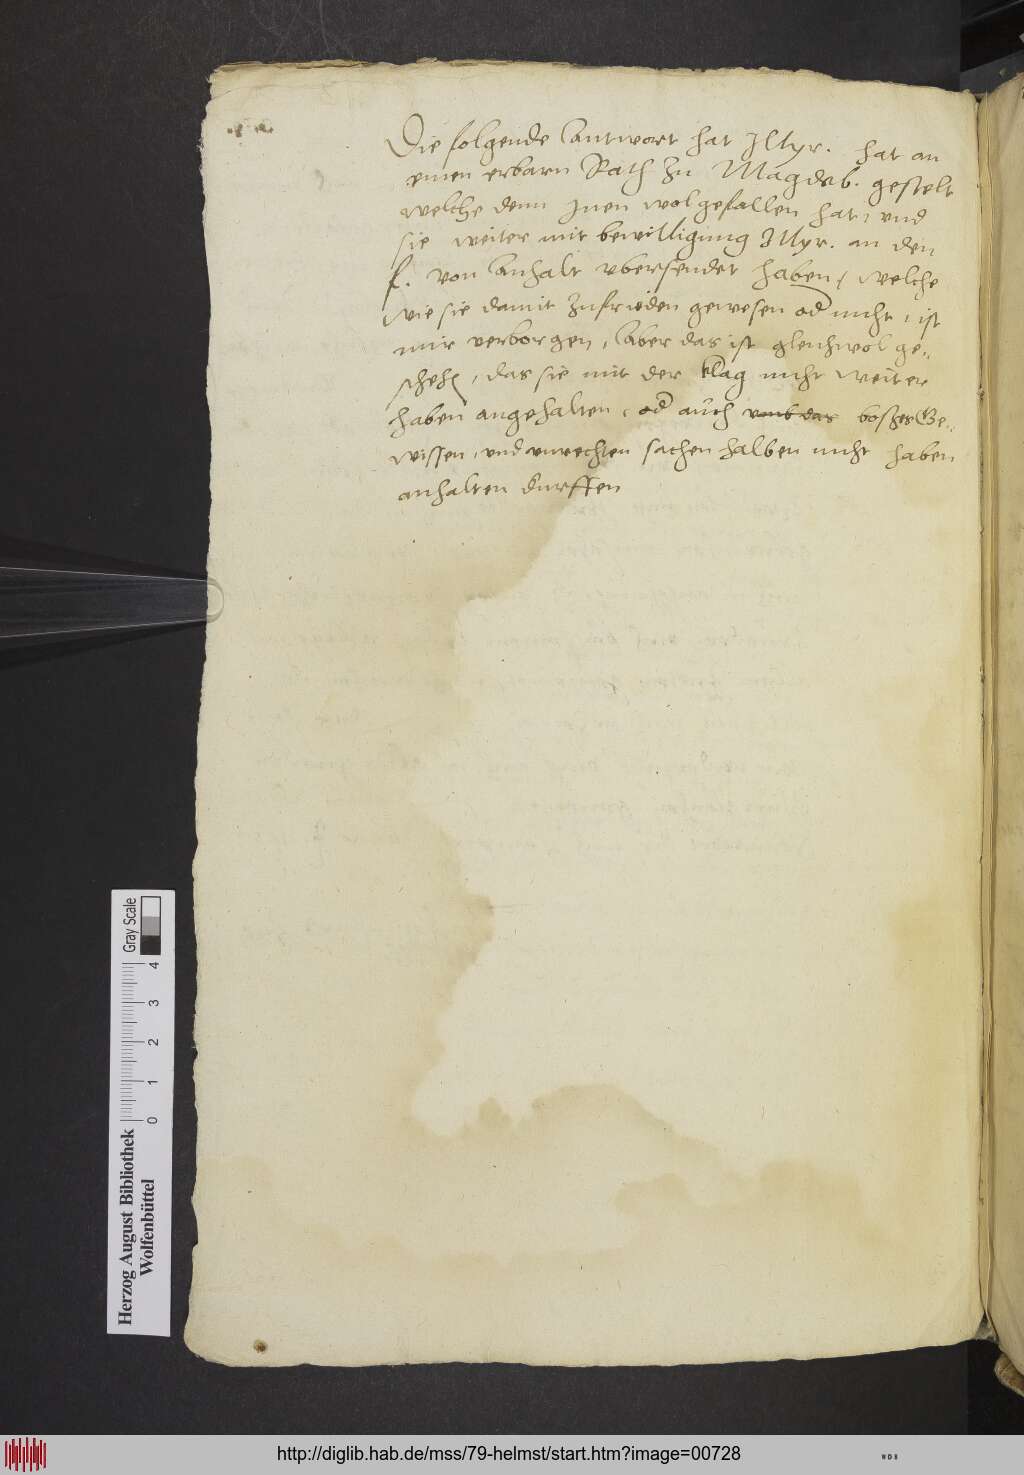 Die folgende Antwort hat Illyr. hat an
einen erbarn Rath zu Magdeb. gestelt
welche denn Inen wolgefallen hat, und
sie weiter mit bewilligung Illyr. an den
f. von Anhalt vbersendet haben, welche
wie sie damit zufrieden gewesen od nicht, ist
mir verborgen, Aber das ist gleichwol ge„
schehen, das sie mit der klag nicht weiter
haben angehalten, od auch vmb das boßes Ge„
wissen, und vnrechten sachen halben nicht haben
anhalten durfften
Gray Scale
0 1 2 3 4
Herzog August Bibliothek
Wolfenbüttel
http://diglib.hab.de/mss/79-helmst/start.htm?image=00728
WDB